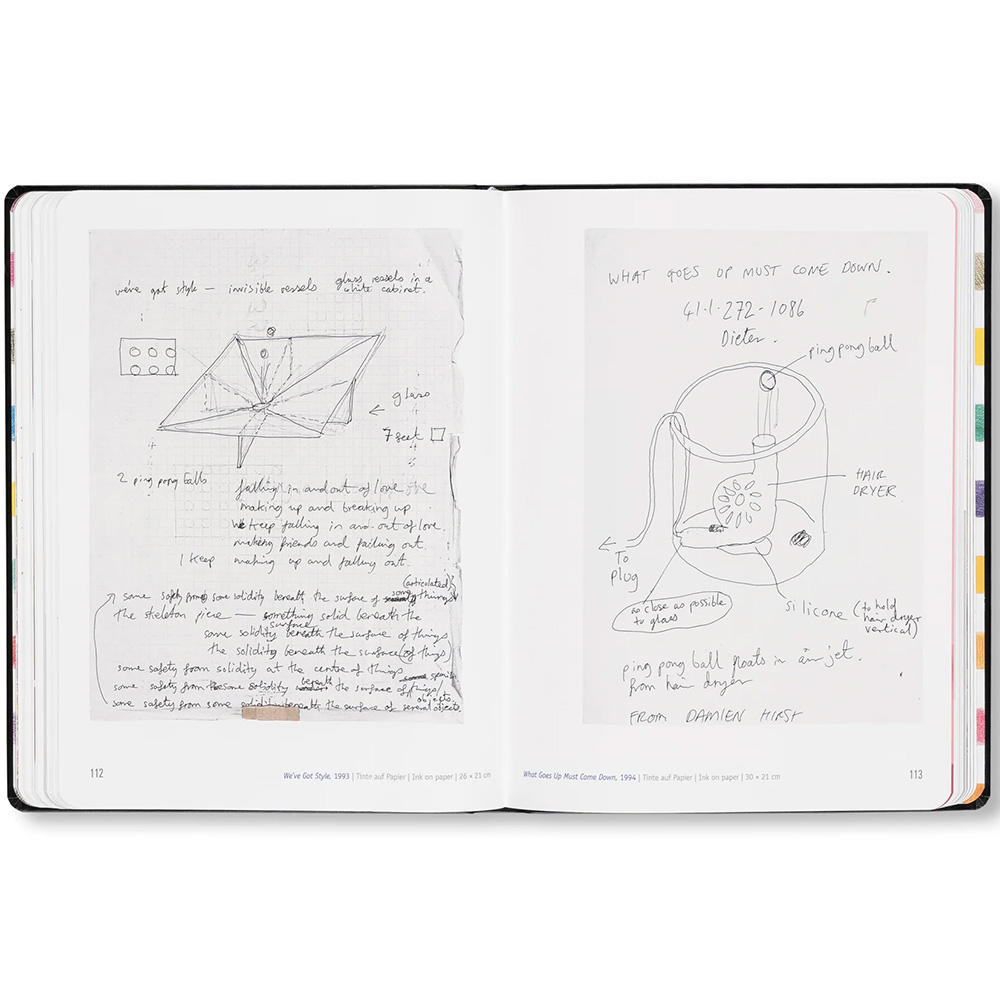 we've got style — invisible vessels glass vessels in a white cabinet.
glass
7 feet
2 ping pong balls
falling in and out of love
making up and breaking up
We keep falling in and out of love.
making friends and falling out.
I keep making up and falling out.
(articulated)
some safety from some solidity beneath the surface of some things
the skeleton piece — something solid beneath the surface
some solidity beneath the surface of things
the solidity beneath the surface (of things)
some safety from solidity at the centre of things
some safety from the some solidity beneath the surface of things
some safety from some solidity beneath the surface of several objects
objects.
112
We've Got Style, 1993 | Tinte auf Papier | Ink on paper | 26 × 21 cm
WHAT GOES UP MUST COME DOWN.
41-1-272-1086
Dieter.
ping pong ball
HAIR DRYER
To plug
as close as possible to glass
silicone (to hold hair dryer vertical)
ping pong ball floats in air jet.
from hair dryer
FROM DAMIEN HIRST
What Goes Up Must Come Down, 1994 | Tinte auf Papier | Ink on paper | 30 × 21 cm
113